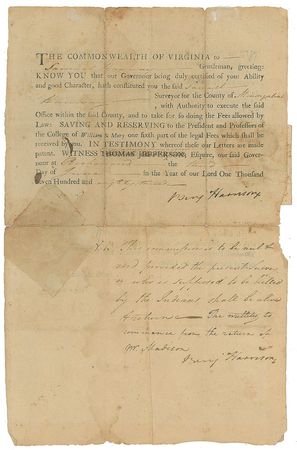 THE COMMONWEALTH OF VIRGINIA to
Gentleman, greeting:
KNOW YOU that our Governor being duly certified of your Ability
and good Character, hath constituted you the said
Surveyor for the County of
, with Authority to execute the said
Office within the said County, and to take for so doing the Fees allowed by
Law: SAVING AND RESERVING to the President and Professors of
the College of William & Mary one sixth part of the legal Fees which shall be
received by you. IN TESTIMONY whereof these our Letters are made
patent. WITNESS THOMAS JEFFERSON, Esquire, our said Governor
at the
day of in the Year of our Lord One Thousand
Seven Hundred and
Benj Harrison
This commission is to be null &
void provided the present Surveyor
who is supposed to be killed
by the Indians shall be alive
& return The nullity to
commence from the return of
Mr. Madison
Benj Harrison